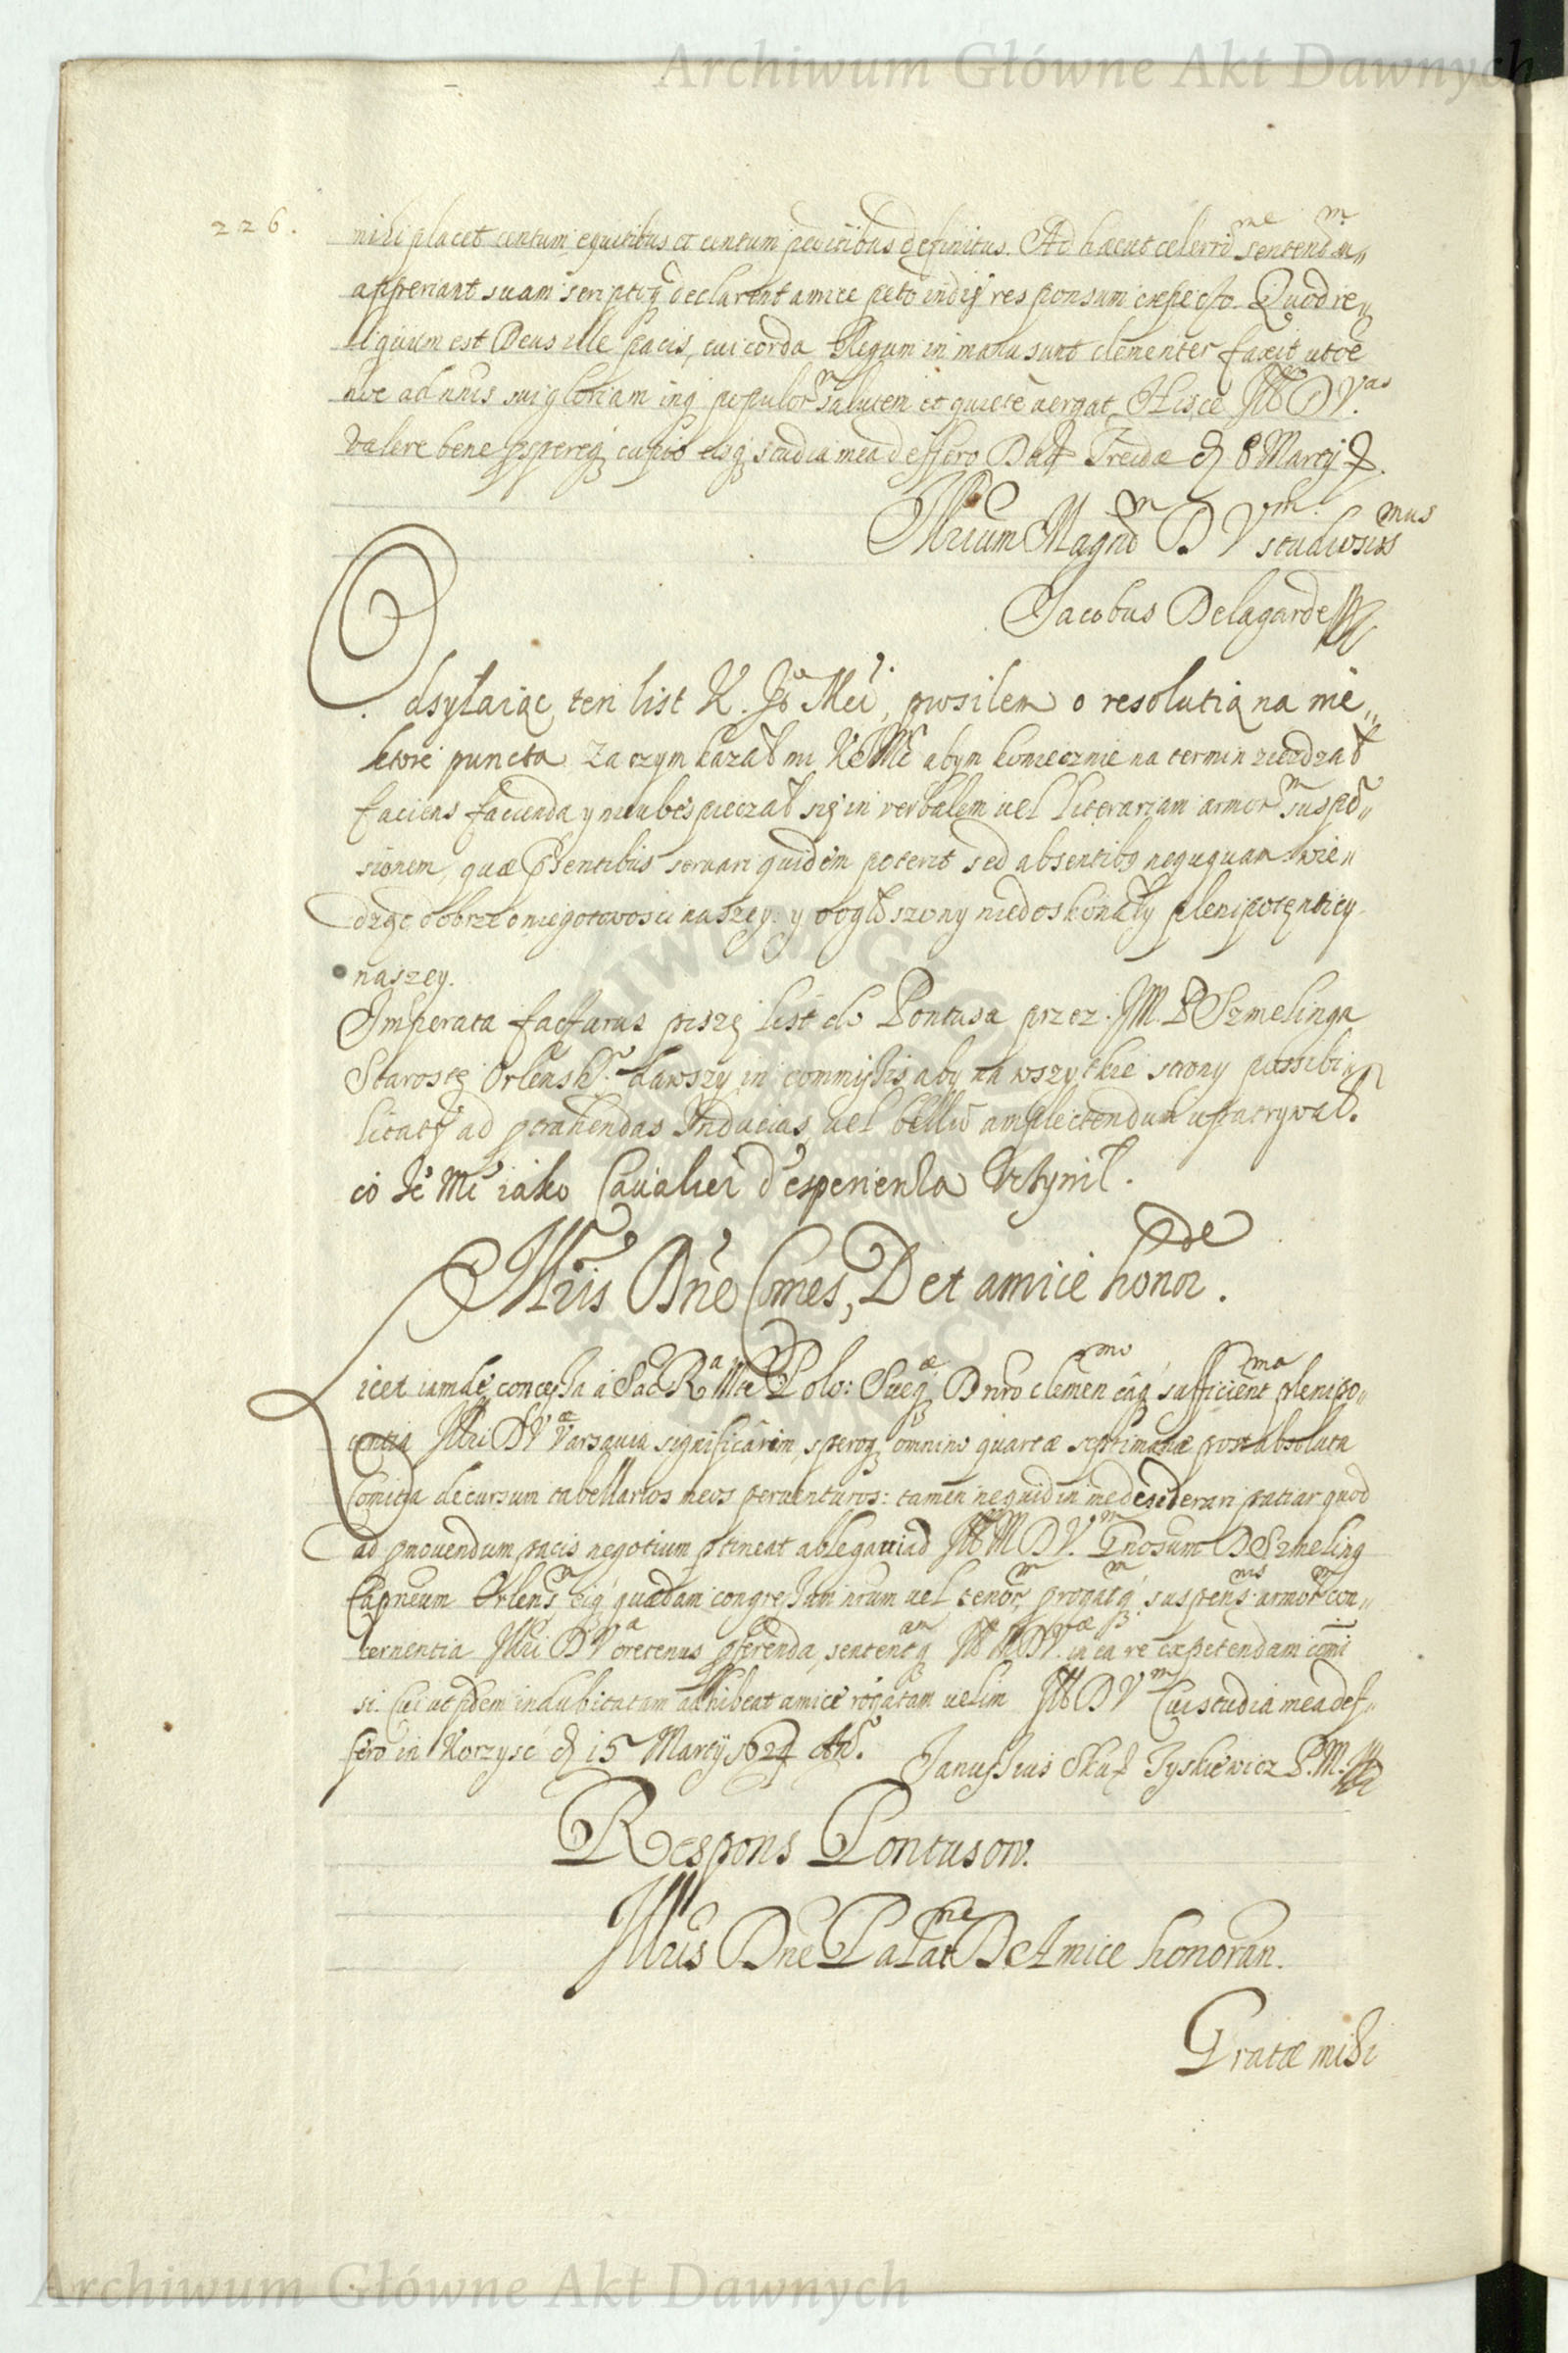 Archiwum Główne Akt Dawnych
226.
mihi placet centum equitibus et centum peditibus definitus. Ad hæc ut celerrime sententiam
apperiant suam scriptoq declarent amice peto indiq responsum expecto. Quod re„
liquum est Deus ille pacis, cui corda Regum in manu sunt clementer faxit ut oe
hoc ad nnis sui gloriam inq populorm salutem et quiete vergat. Hisce Illb D V.as
valere bene pspereq cupio eisq studia mea deffero Dat Treidæ d 8 Martij
Illrium Magnd D Vm. studiosissmus
Jacobus Delagarde
Odsyłaiąc ten list K. Jo Mci, prosilem o resolutią na nie„
ktore puncta Za czym kazał mi KJeMc abym koniecznie na termin ziezdzał
faciens facienda y nieubespieczał się in verbalem uel literariam armorm suspe„
sionem, quæ psentibus seruari quidem poterit sed absentibq neququam wie„
dząc dobrze o niegotowosci naszey. y oogłoszony niedoskonały plenipotentiey
naszey.
Imperata facturus piszę list do Pontusa przez JM. P Szmelinga
Starostę Orlensk. dawszy in commissis aby na wszytkie strony possibi„
litatē ad ptrahendas Inducias, uel bellū amplectendum upatrywał.
co Je Mc iako Cavalier d'esperienza Vczynił.
Illris Dne Comes, D et amice honorde.
Licet iamdē concessa a Sac Ra Mte Polo: Sueq Dnro clemenmo eaq sufficienttma plenipo„
tentia Illri DVæ Varsauia significârim, speroq omnino quartæ septimanæ post absoluta
Comitia decursum tabellarios meos peruenturos: tamen nequid in me desiderari patiar quod
ad pmouendum pacis negotium ptineat ablegaui ad Illb M D V.m Gnosum D Szmeling
Capneum Orlensm eiq quædam congressum nrum uel tenorm progatq suspensnis armorm con„
cernentia Illri DVa oretenus pferenda, sententqam Illb M DVæ in ea re expetendam comi
si. Cui ut fidem indubitatam adhibeat amice rogatam uelim Illb D Vm Cui studia mea def„
fero in Korzysć d 15 Martij 1624 Ao.
Janussius Skuł Tyskiewicz P.M.
Respons Pontusow.
Illris Dne Palatne D Amice honoran.
Gratæ mihi
Archiwum Główne Akt Dawnych